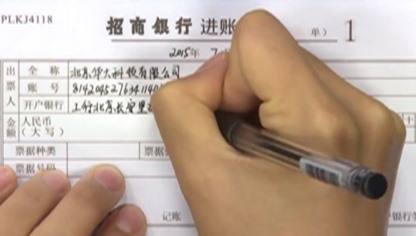 PLKJ4118
招商银行 进账 单) 1
2015年 7
出票人 全称 北京华大科技有限公司
账号
开户银行 工行北京长安里
金额 人民币(大写)
票据种类 票据
票据号码
记账